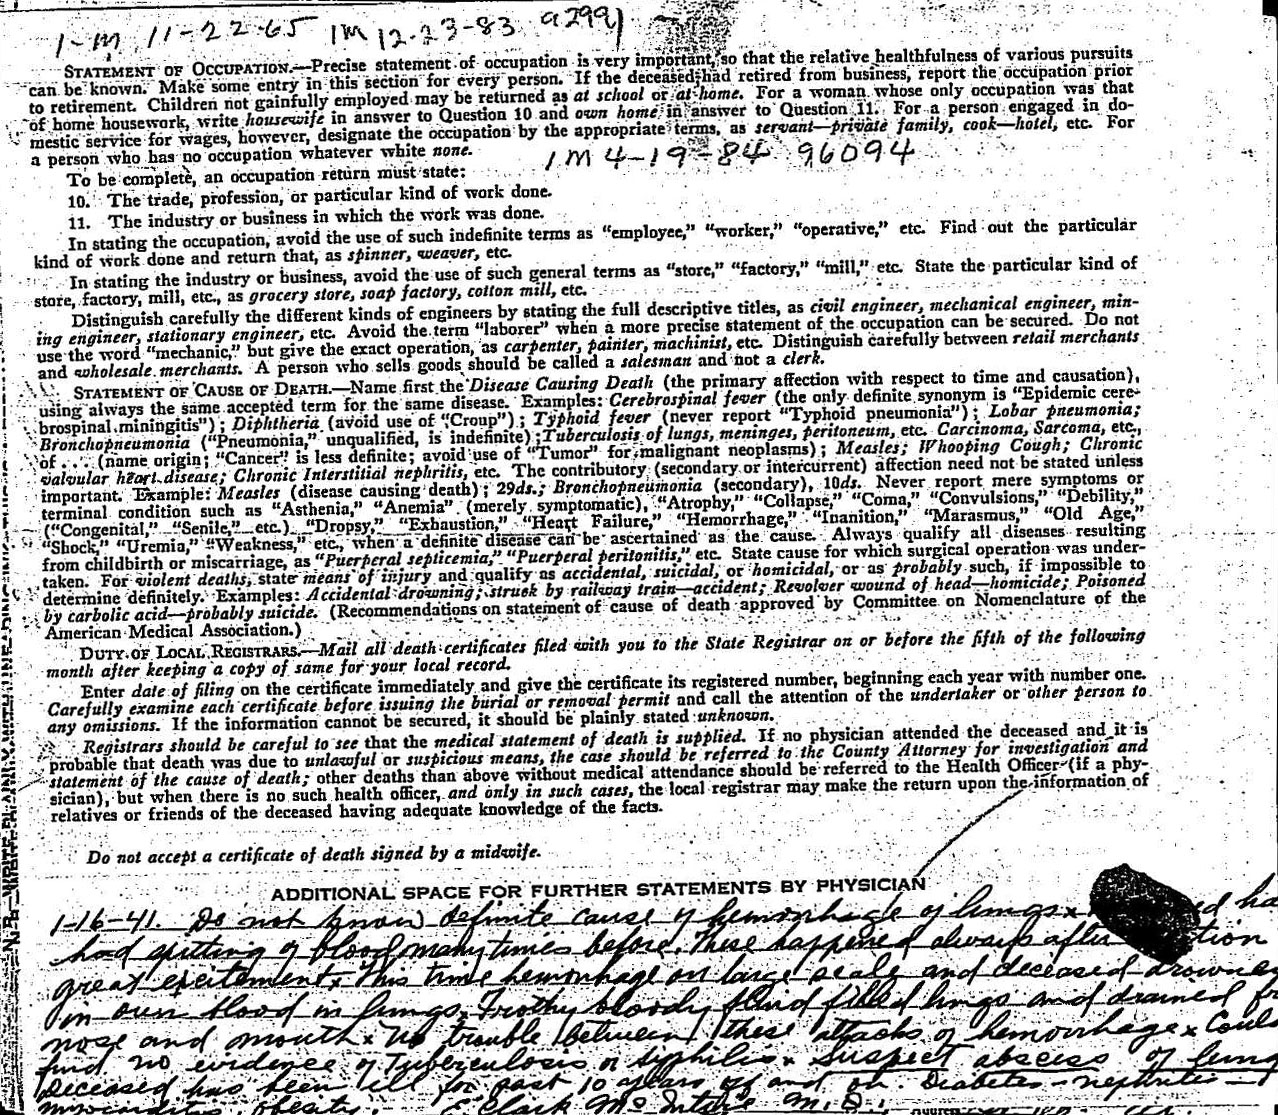 1-M 11-22-65 1M 12-23-83 9299)
STATEMENT OF OCCUPATION.—Precise statement of occupation is very important, so that the relative healthfulness of various pursuits
can be known. Make some entry in this section for every person. If the deceased had retired from business, report the occupation prior
to retirement. Children not gainfully employed may be returned as at school or at home. For a woman whose only occupation was that
of home housework, write housewife in answer to Question 10 and own home in answer to Question 11. For a person engaged in do-
mestic service for wages, however, designate the occupation by the appropriate terms, as servant—private family, cook—hotel, etc. For
a person who has no occupation whatever white none.
1M 4-19-84 96094
To be complete, an occupation return must state:
10. The trade, profession, or particular kind of work done.
11. The industry or business in which the work was done.
In stating the occupation, avoid the use of such indefinite terms as “employee,” “worker,” “operative,” etc. Find out the particular
kind of work done and return that, as spinner, weaver, etc.
In stating the industry or business, avoid the use of such general terms as “store,” “factory,” “mill,” etc. State the particular kind of
store, factory, mill, etc., as grocery store, soap factory, cotton mill, etc.
Distinguish carefully the different kinds of engineers by stating the full descriptive titles, as civil engineer, mechanical engineer, min-
ing engineer, stationary engineer, etc. Avoid the term “laborer” when a more precise statement of the occupation can be secured. Do not
use the word “mechanic,” but give the exact operation, as carpenter, painter, machinist, etc. Distinguish carefully between retail merchants
and wholesale merchants. A person who sells goods should be called a salesman and not a clerk.
STATEMENT OF CAUSE OF DEATH.—Name first the Disease Causing Death (the primary affection with respect to time and causation),
using always the same accepted term for the same disease. Examples: Cerebrospinal fever (the only definite synonym is “Epidemic cere-
brospinal miningitis”); Diphtheria (avoid use of “Croup”); Typhoid fever (never report “Typhoid pneumonia”); Lobar pneumonia;
Bronchopneumonia (“Pneumonia,” unqualified, is indefinite); Tuberculosis of lungs, meninges, peritoneum, etc. Carcinoma, Sarcoma, etc.,
of ... (name origin; “Cancer” is less definite; avoid use of “Tumor” for malignant neoplasms); Measles; Whooping Cough; Chronic
valvular heart disease; Chronic Interstitial nephritis, etc. The contributory (secondary or intercurrent) affection need not be stated unless
important. Example: Measles (disease causing death); 29ds.; Bronchopneumonia (secondary), 10ds. Never report mere symptoms or
terminal condition such as “Asthenia,” “Anemia” (merely symptomatic), “Atrophy,” “Collapse,” “Coma,” “Convulsions,” “Debility,”
(“Congenital,” “Senile,” etc.) “Dropsy,” “Exhaustion,” “Heart Failure,” “Hemorrhage,” “Inanition,” “Marasmus,” “Old Age,”
“Shock,” “Uremia,” “Weakness,” etc., when a definite disease can be ascertained as the cause. Always qualify all diseases resulting
from childbirth or miscarriage, as “Puerperal septicemia,” “Puerperal peritonitis,” etc. State cause for which surgical operation was under-
taken. For violent deaths, state means of injury and qualify as accidental, suicidal, or homicidal, or as probably such, if impossible to
determine definitely. Examples: Accidental drowning; struck by railway train—accident; Revolver wound of head—homicide; Poisoned
by carbolic acid—probably suicide. (Recommendations on statement of cause of death approved by Committee on Nomenclature of the
American Medical Association.)
DUTY OF LOCAL REGISTRARS.—Mail all death certificates filed with you to the State Registrar on or before the fifth of the following
month after keeping a copy of same for your local record.
Enter date of filing on the certificate immediately and give the certificate its registered number, beginning each year with number one.
Carefully examine each certificate before issuing the burial or removal permit and call the attention of the undertaker or other person to
any omissions. If the information cannot be secured, it should be plainly stated unknown.
Registrars should be careful to see that the medical statement of death is supplied. If no physician attended the deceased and it is
probable that death was due to unlawful or suspicious means, the case should be referred to the County Attorney for investigation and
statement of the cause of death; other deaths than above without medical attendance should be referred to the Health Officer (if a phy-
sician), but when there is no such health officer, and only in such cases, the local registrar may make the return upon the information of
relatives or friends of the deceased having adequate knowledge of the facts.
Do not accept a certificate of death signed by a midwife.
ADDITIONAL SPACE FOR FURTHER STATEMENTS BY PHYSICIAN
1-16-41. Do not know definite cause of hemorrhage of lungs x ed ha
had spitting of blood many times before. These happened always after tion
great excitement x This time hemorrhage on large scale and deceased drowned
in own blood in lungs. Frothy bloody fluid filled lungs and drained fr
nose and mouth x No trouble between these attacks of hemorrhage x Coul
find no evidence of Tuberculosis or syphilis x Suspect abscess of lung
Deceased has been ill for past 10 years off and on. Diabetes - nephritis -
obesity. E. Clark McIntire M.D.